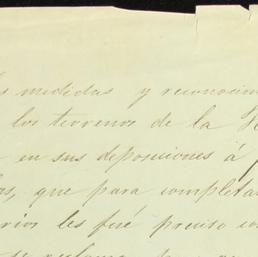 s medidas y reconocim
los terrenos de la
en sus deposiciones á
que para completa
rios les fué preciso